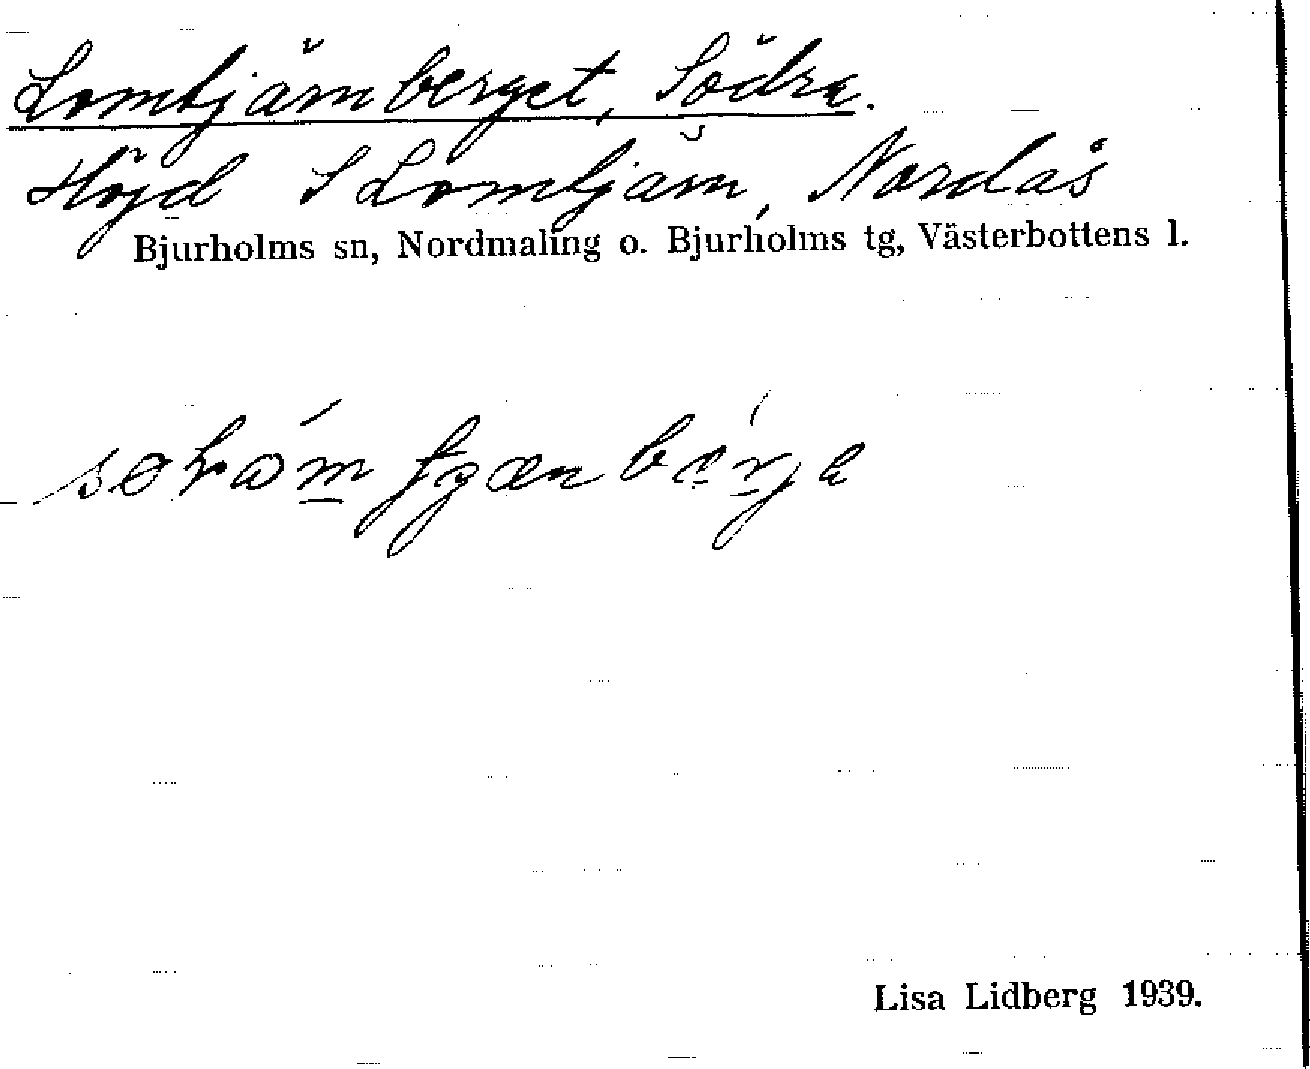 Lomtjärnberget, Södra.
Höjd S Lomtjärn, Nordås
Bjurholms sn, Nordmaling o. Bjurholms tg, Västerbottens l.
Lisa Lidberg 1939.